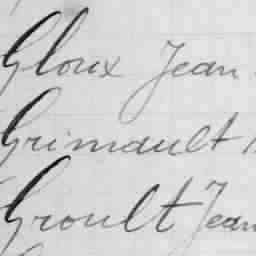 Gloux Jean
Grimault
Groult Jean